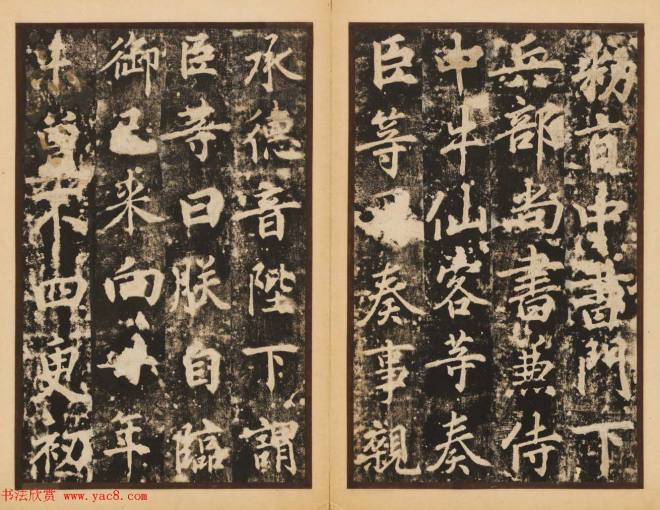 敕旨中書門下
兵部尚書兼侍
中牛仙客等奏
臣等奏事親
承德音陛下謂
臣等曰朕自臨
御已来向年
未曾不四更初
书法欣赏 www.yac8.com